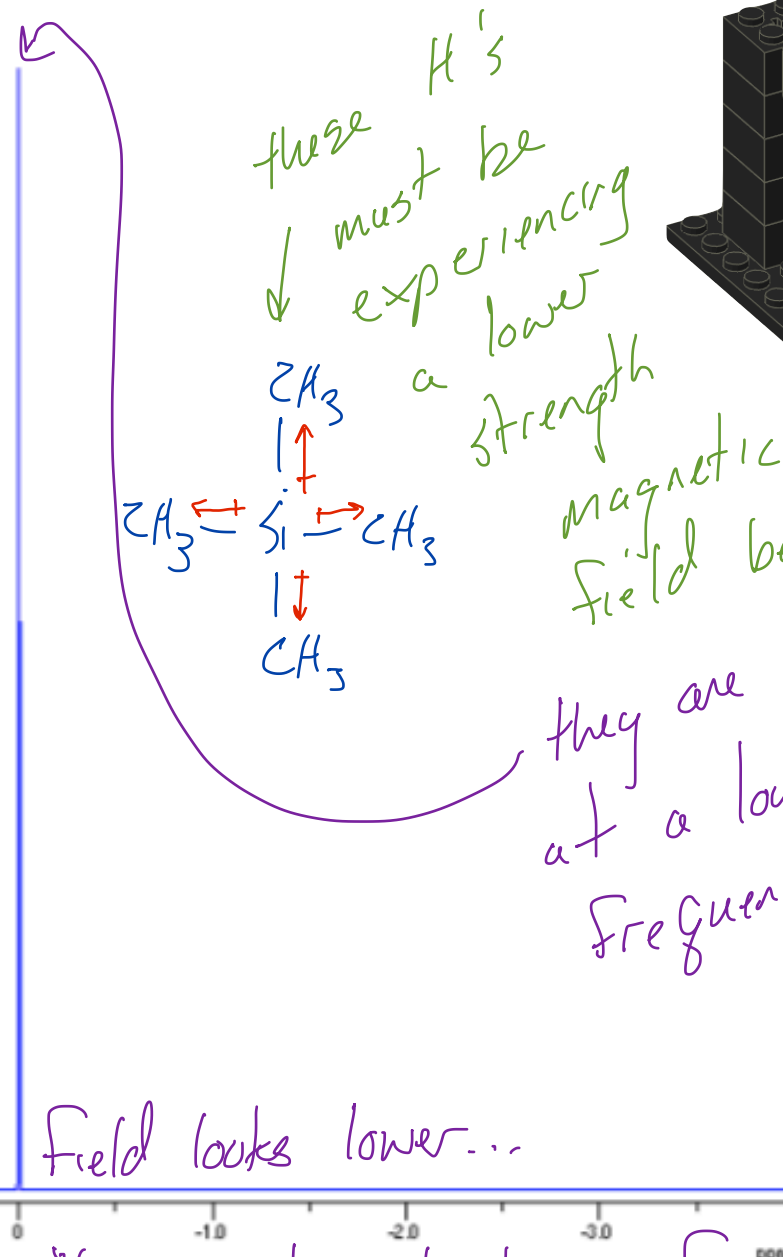 H's
these
must be
experiencing
a lower
strength
magnetic
field
CH3
CH3 Si CH3
CH3
they are
at a
Field looks lower...
0 -1.0 -2.0 -3.0